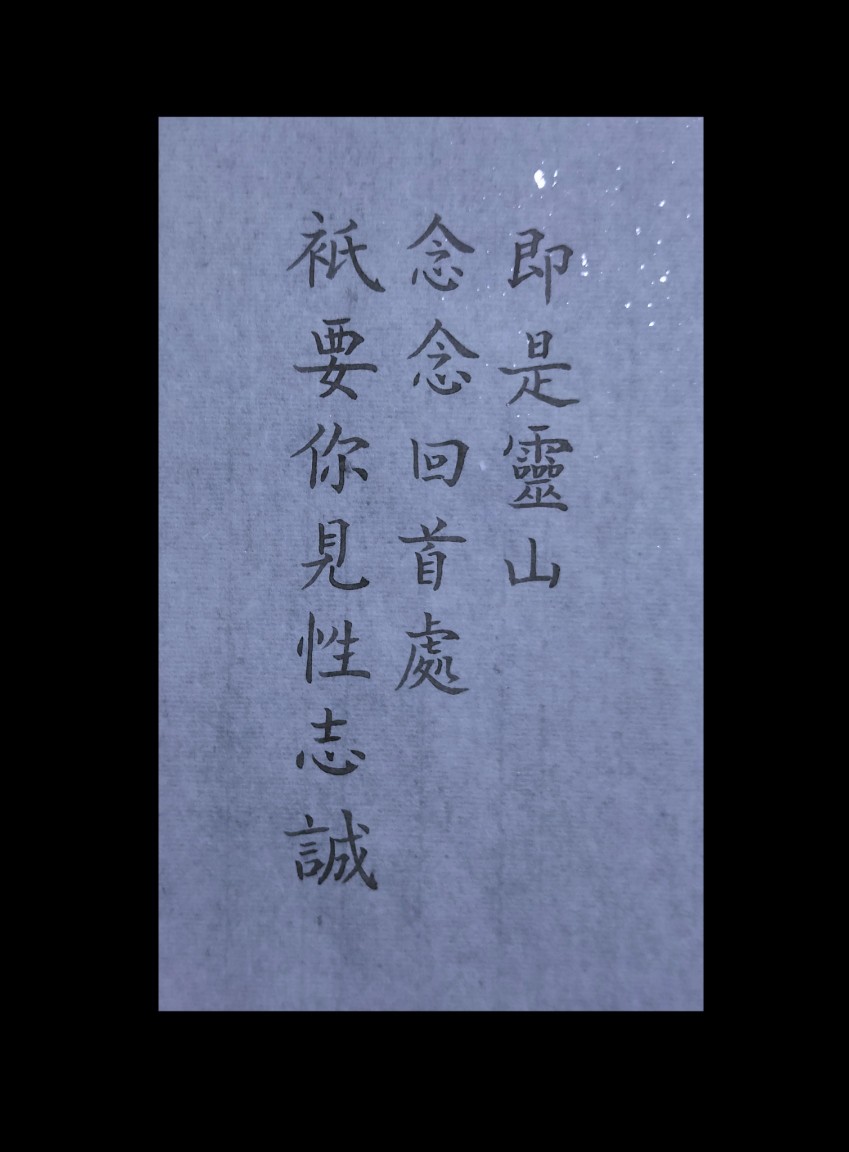 衹要你見性志誠
念念回首處
即是靈山